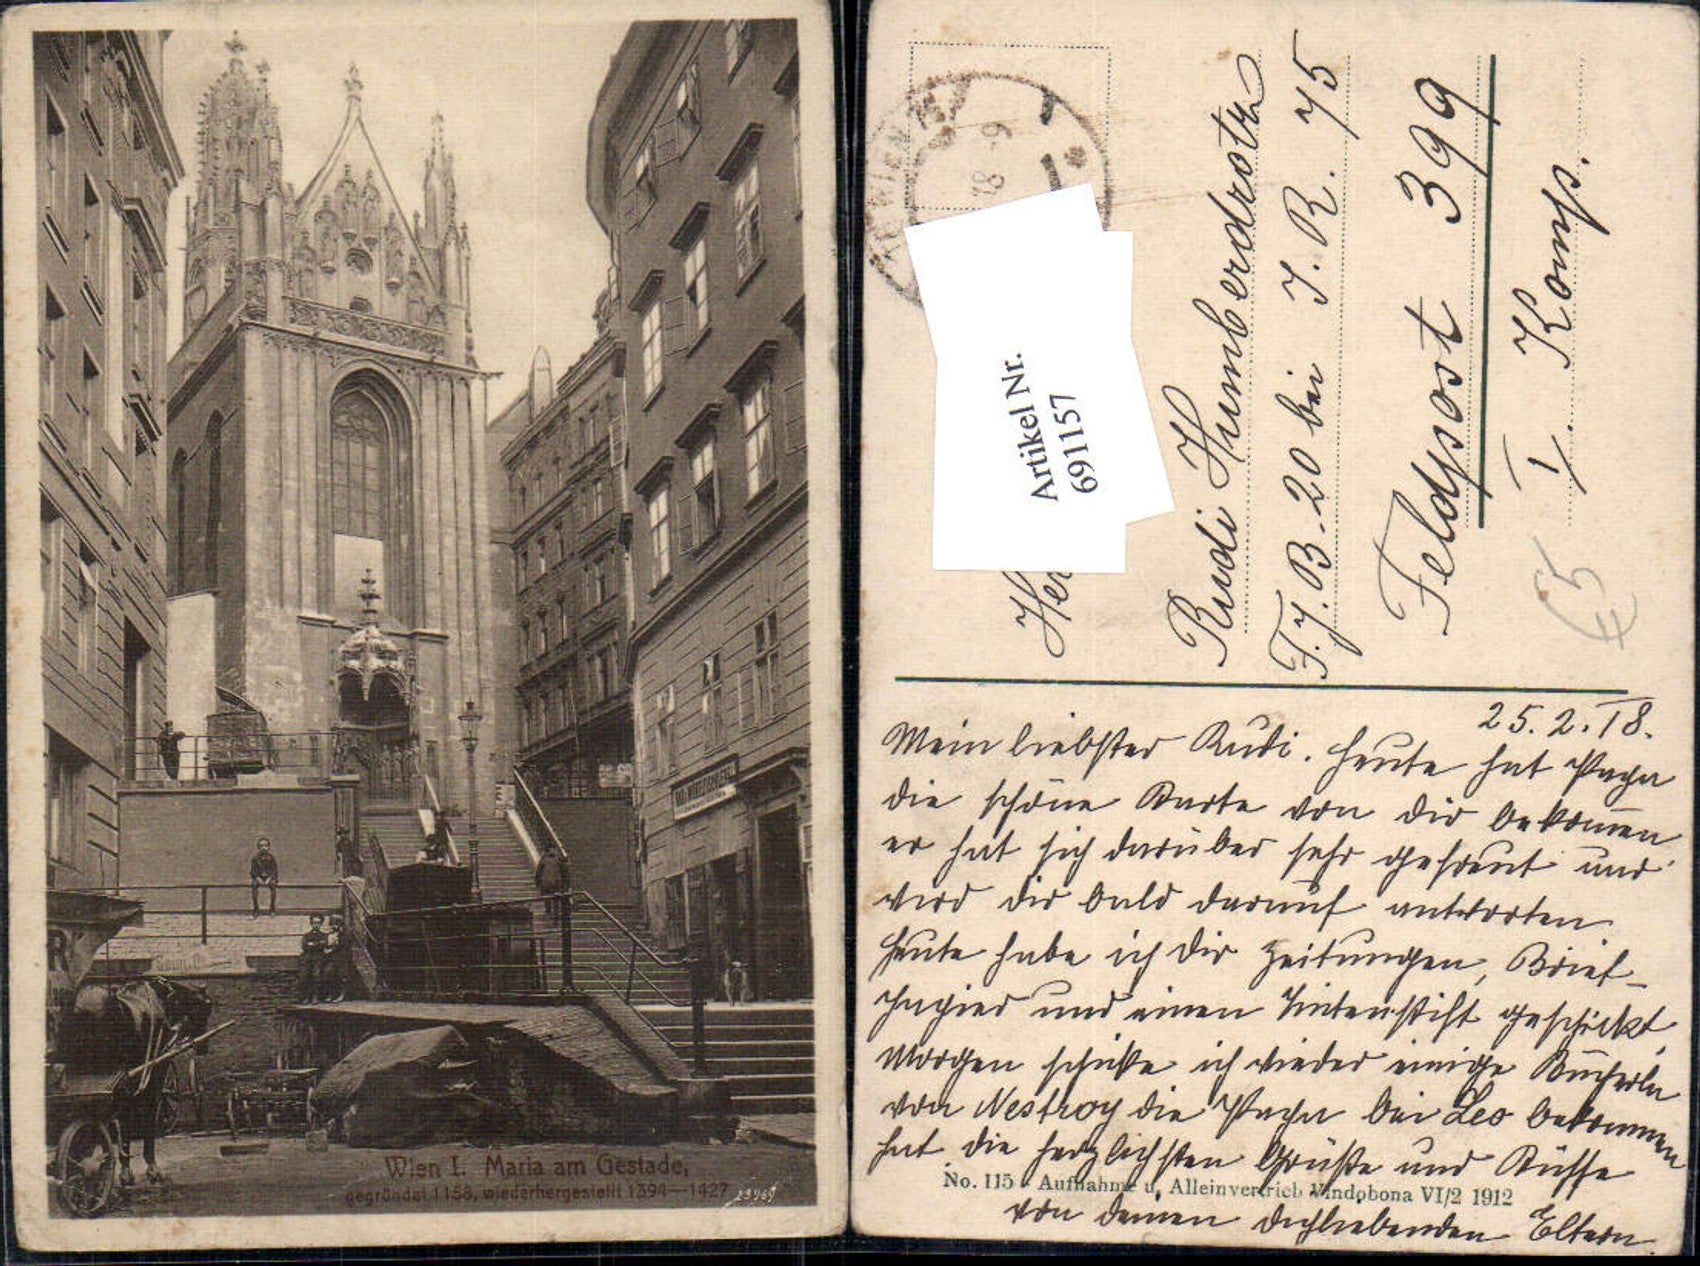 Wien I. Maria am Gestade,
gegründet 1158, wiederhergestellt 1394—1427
23969
WIEN
18 - 9
Artikel Nr.
691157
Rudi Humberdrotz
F.J.B. 20 bei I. R. 75
Feldpost 399
I. Komp.
€5
25.2.18.
Mein liebster Rudi. Heute hat Papa
die schöne Karte von dir bekommen
er hat sich darüber sehr gefreut und
wird dir bald darauf antworten
Heute habe ich dir Zeitungen, Brief-
papier und einen Tintenstift geschickt,
Morgen schicke ich wieder einige Bücherln
von Nestroy die Papa bei Leo bekommen
hat. die herzlichsten Grüße und Küsse
von deinen dichliebenden Eltern.
No. 115 Aufnahme u. Alleinvertrieb Vindobona VI/2 1912